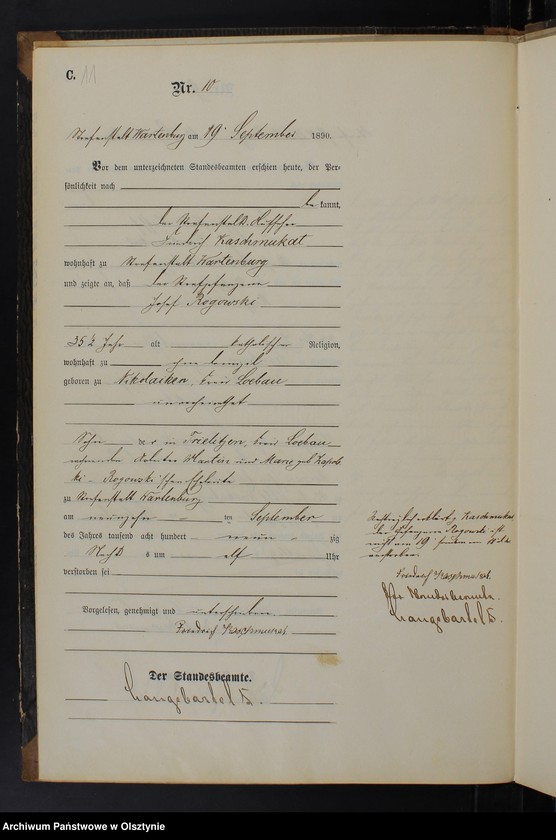 C. 11
Nr. 10
Strafanstalt Wartenburg am 19 September 1890.
Vor dem unterzeichneten Standesbeamten erschien heute, der Per-
sönlichkeit nach
be kannt,
der Strafanstalts Aufseher
Friedrich Kaschmukat
wohnhaft zu Strafanstalt Wartenburg
und zeigte an, daß der Strafgefangene
Josef Rogowski
35½ Jahr alt katholischer Religion,
wohnhaft zu
geboren zu Nikolaiken, Kreis Loebau
unverheirathet
Sohn der in Kreis Loebau
wohnenden Arbeiter Martin und Marie geb
Rogowski'schen Eheleute
zu Strafanstalt Wartenburg
am neunzehn ten September
des Jahres tausend acht hundert neun zig
Nachts um elf Uhr
verstorben sei
Vorgelesen, genehmigt und unterschrieben
Friedrich Kaschmukat
Der Standesbeamte.
Langebartel
Kaschmukat
der Gefangene Rogowski ist
nicht um 19
verstorben.
Friedrich Kaschmukat.
Der Standesbeamte.
Langebartel
Archiwum Państwowe w Olsztynie